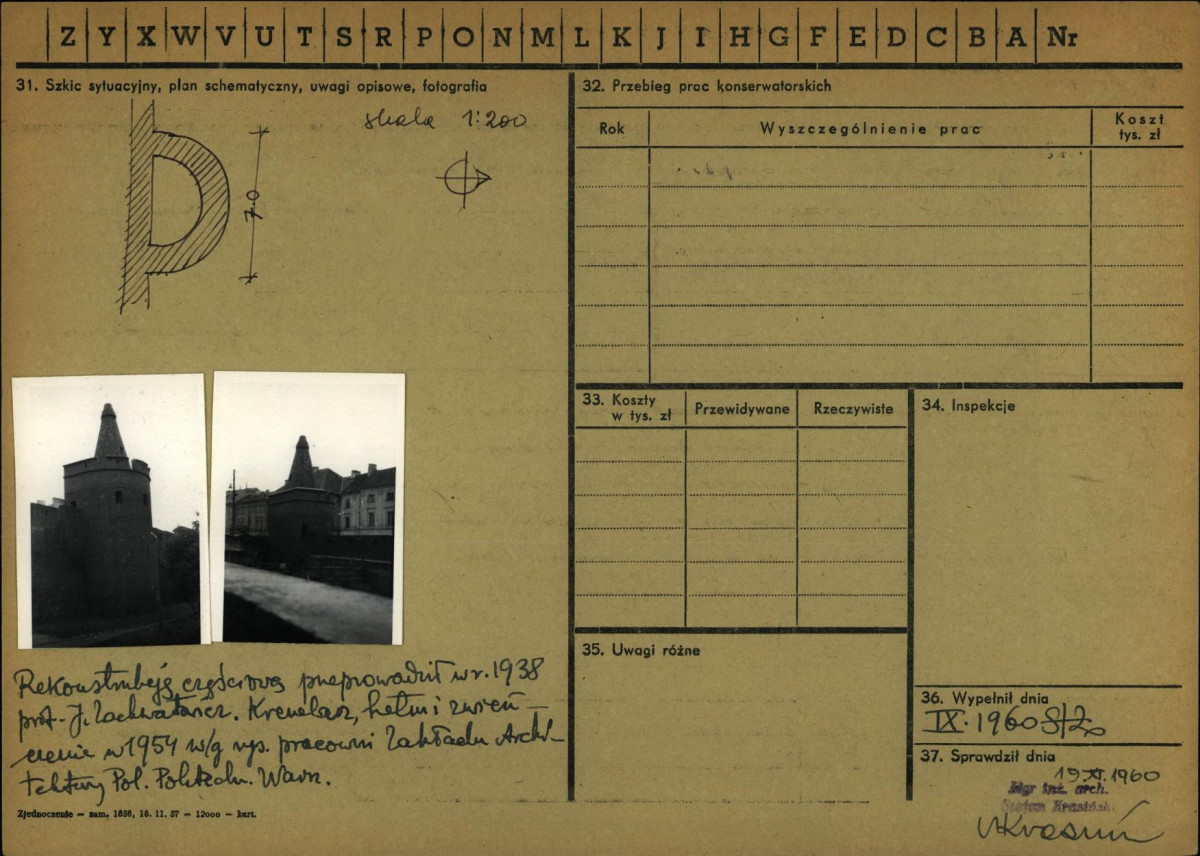 Z Y X W V U T S R P O N M L K J I H G F E D C B A Nr
31. Szkic sytuacyjny, plan schematyczny, uwagi opisowe, fotografia
skala 1:200
7.0
Rekonstrukcję częściową przeprowadził w r. 1938
prof. J. Zachwatowicz. Krenelaż, hełm i zwień-
czenie w 1954 w/g rys. pracowni Zakładu Archi-
tektury Pol. Politechn. Warsz.
Zjednoczenie — zam. 1856, 16. 11. 57 — 12000 — kart.
32. Przebieg prac konserwatorskich
Rok
Wyszczególnienie prac
Koszt
tys. zł
33. Koszty
w tys. zł
Przewidywane
Rzeczywiste
34. Inspekcje
35. Uwagi różne
36. Wypełnił dnia
IX. 1960
37. Sprawdził dnia
19.XI.1960
Mgr inż. arch.